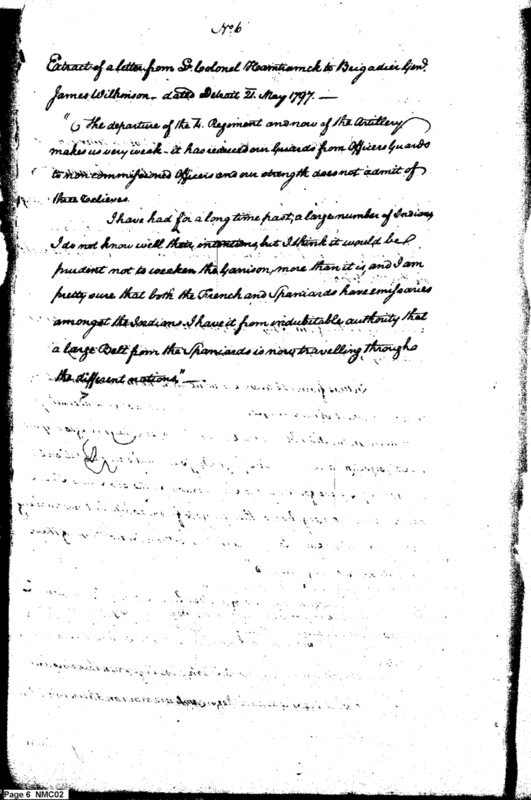 No. 6
Extract of a letter from Lt. Colonel Hamtramck to Brigadier Genl.
James Wilkinson - dated Detroit 21. May 1797. —
"The departure of the 4. Regiment and now of the Artillery
makes us very weak - it has reduced our Guards from Officers Guards
to non commissioned Officers and our strength does not admit of
three relieves.
I have had for a long time past, a large number of Indians
I do not know well their intentions, but I think it would be
prudent not to weaken the Garison, more than it is, and I am
pretty sure that both the French and Spaniards have emissaries
amongst the Indians. I have it from indubitable authority that
a large Belt from the Spaniards is now travelling through
the different nations," —
Page 6 NMC02